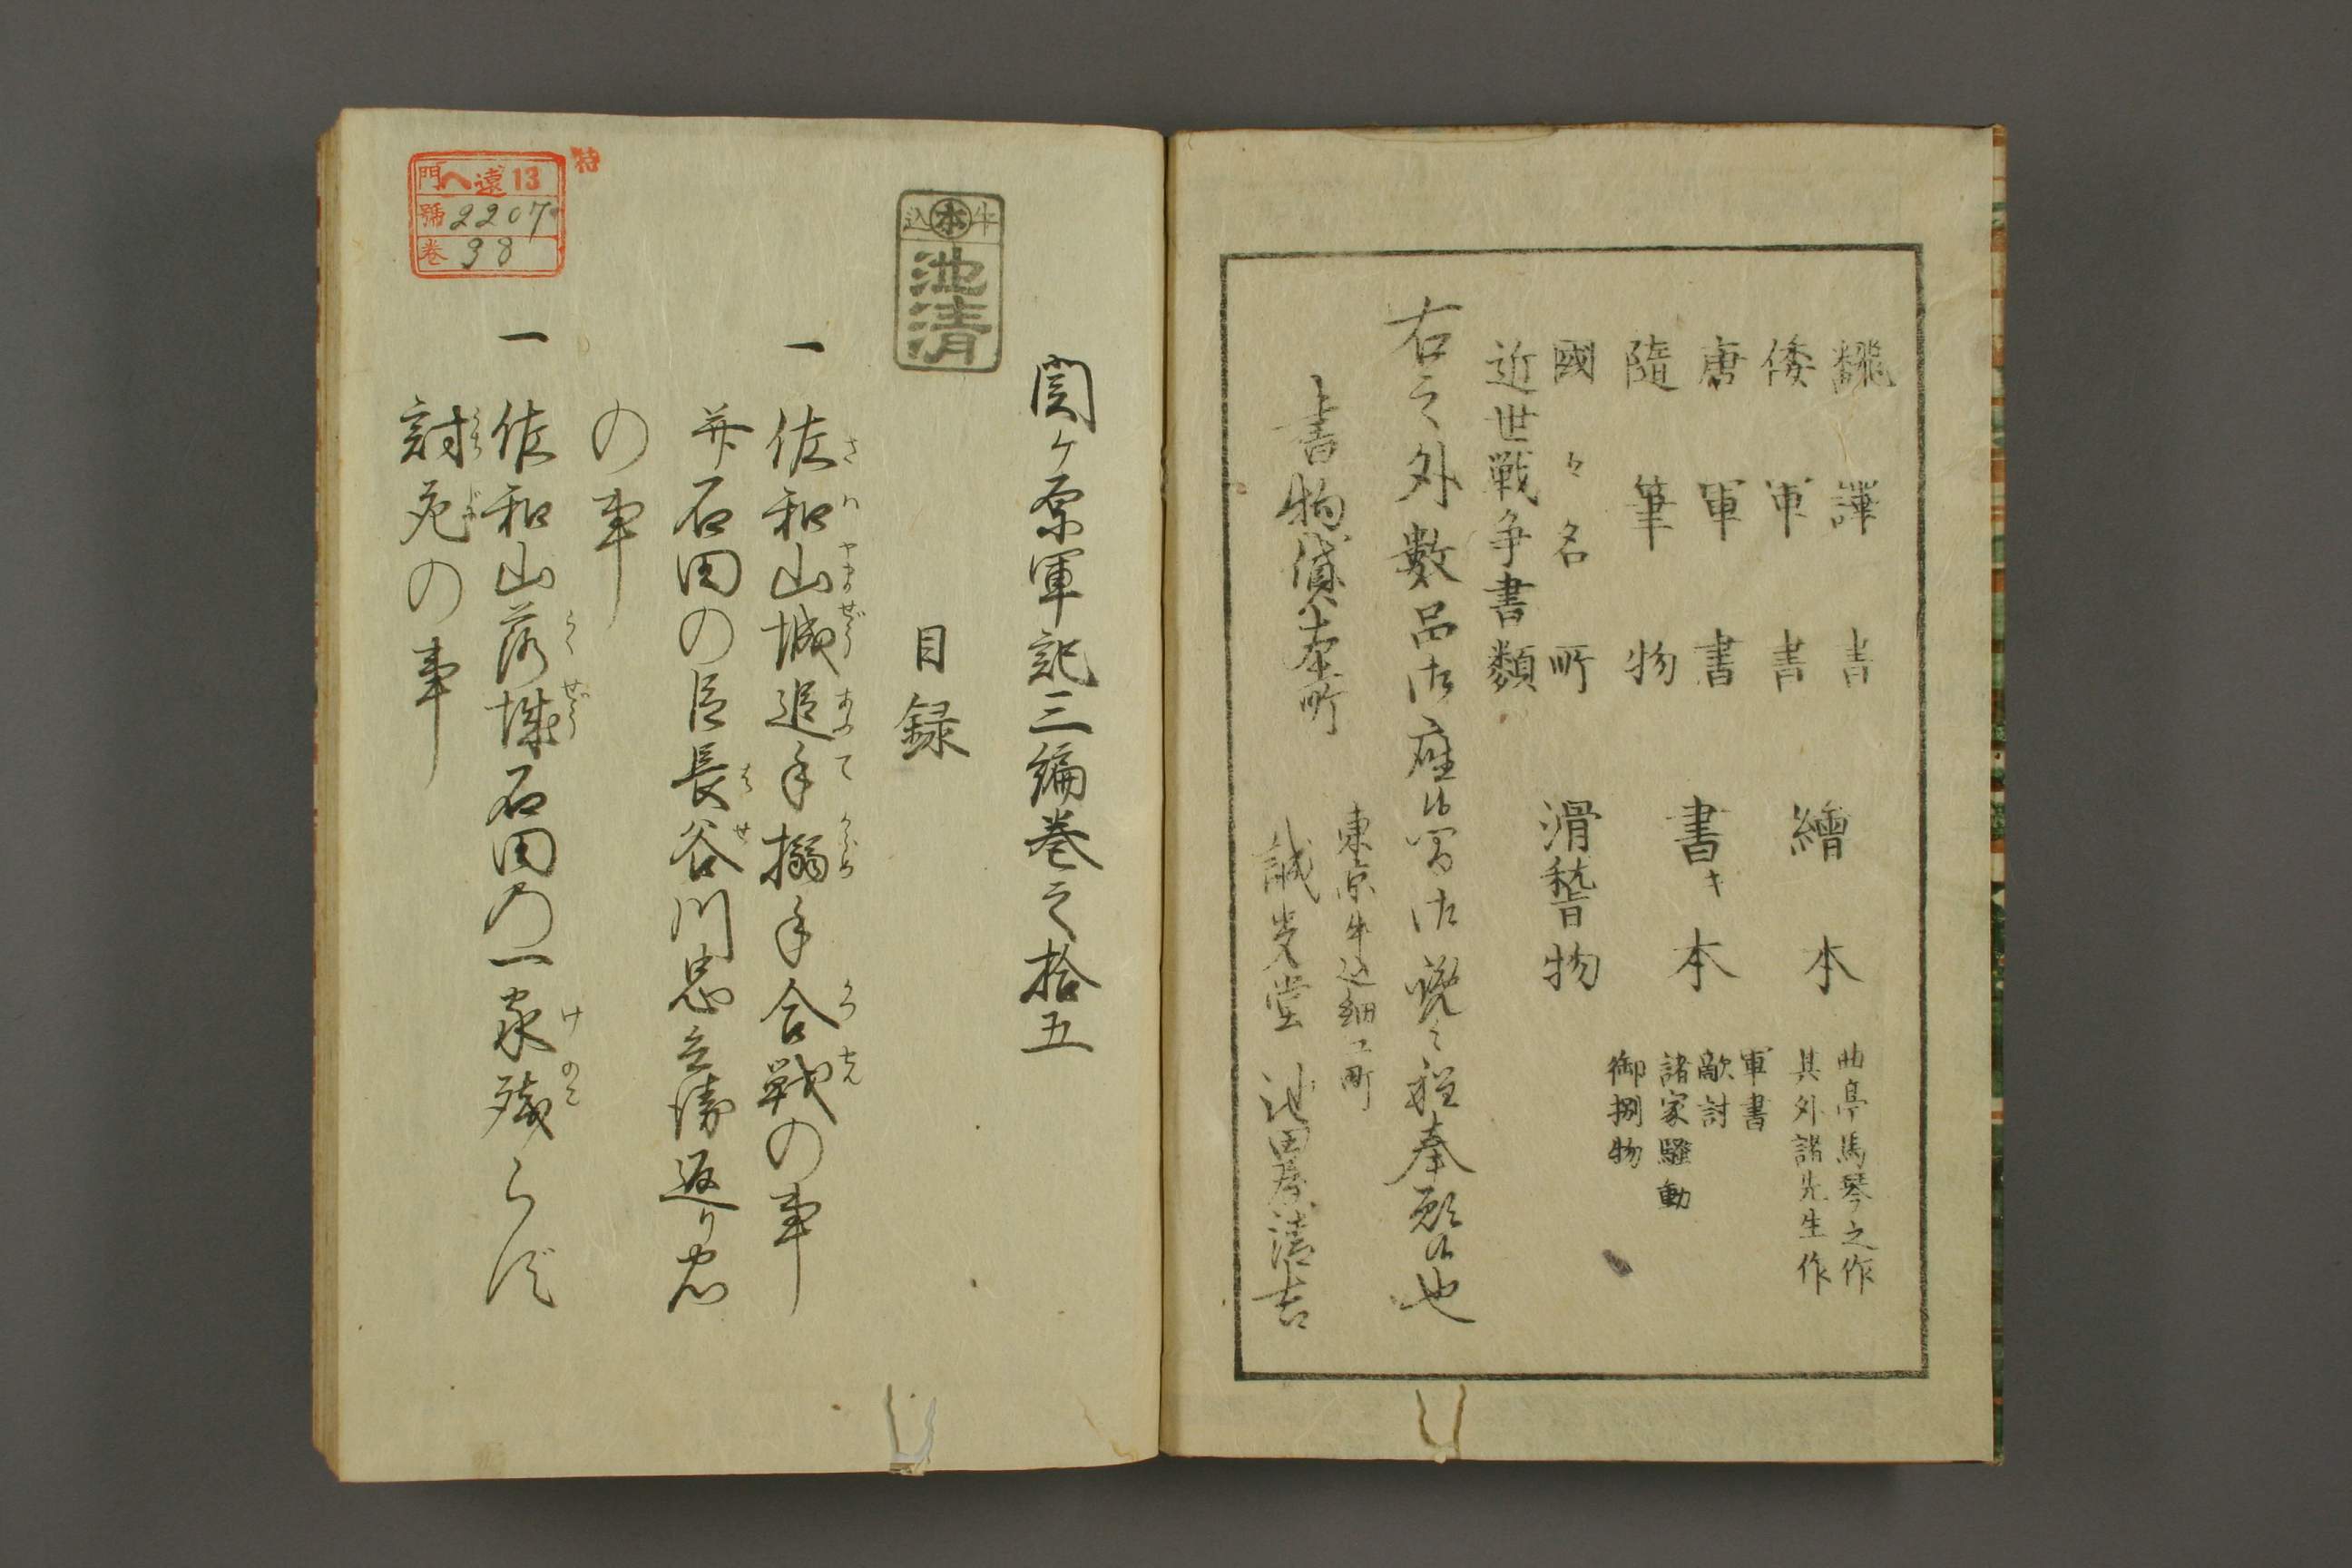 飜譯書
倭軍書
唐軍書
隨筆物
國々名所
近世戦争書類
繪本
書キ本
滑稽物
曲亭馬琴之作
其外諸先生作
軍書
敵討
諸家騒動
御捌物
右之外數品御座候間御覧之程奉願候也
書物貸本所
東京牛込細工町
誠光堂 池田屋清吉
関ヶ原軍記三編巻之拾五
牛本込
池清
目録
一 佐和山城追手搦手合戦の事
并石田の臣長谷川忠兵衛返り忠
の事
一 佐和山落城石田の一家残らず
討死の事
特
門 ヘ遠13
號 2207
巻 38